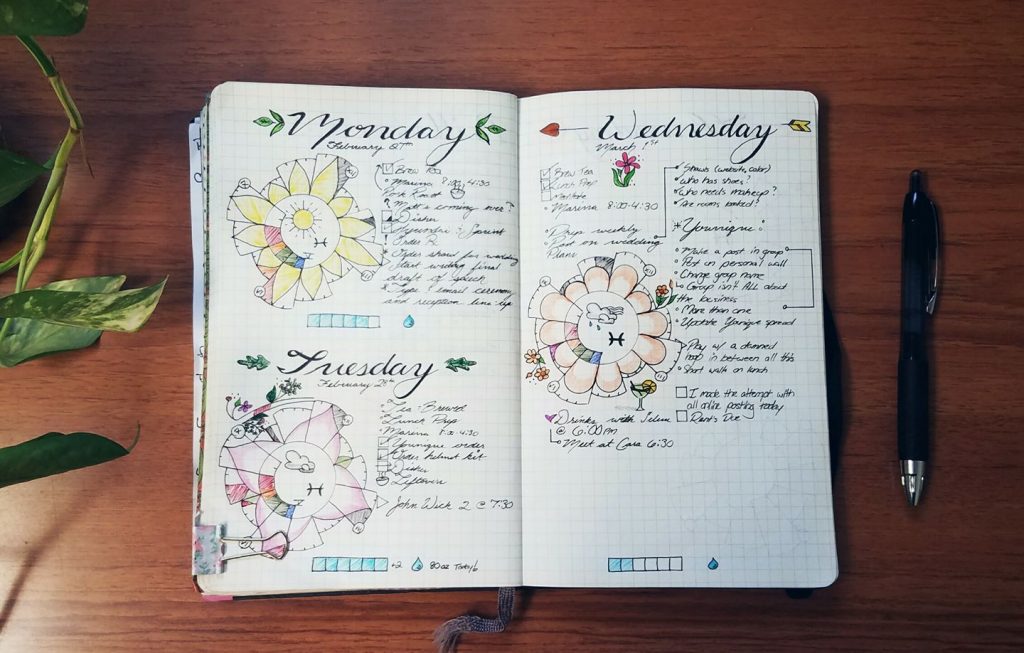 Monday
February 27th
Brew Tea
Marina 8:00-4:30
Pork Roast
Matt's coming over?
Dishes
Order
Order shawl for wedding
Start writing final
draft of speech
Type & email ceremony
and reception line up
Tuesday
February 28th
Tea Brewed
Lunch Prep
Marina 8:00-4:30
Younique order
Order helmet kit
Dishes
Leftovers
John Wick 2 @ 7:30
+2 80oz Today!
Wednesday
March 1st
Brew Tea
Lunch Prep
Marina 8:00-4:30
Prep weekly
Post on wedding
Plans
Shawls (website, color)
Who has shoes?
Who needs makeup?
Are rooms booked?
*Younique:
Make a post in group
Post on personal wall
Change group name
Group isn't ALL about
the business
More than one
Update Younique spread
Play w/ a damned
hoop in between all this
Short walk on lunch
I made the attempt with
all online posting today
Rent's Due
Drinks with
@ 6:00PM
Meet at Casa 6:30